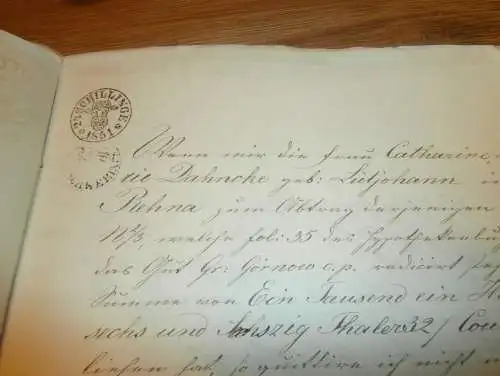 22 SCHILLINGE
1851
Wenn mir die Frau Catharine
die Dahncke geb: Lütjohann in
Rehna zum Abtrag derjenigen
welche fol: 35 des Hypothekenbu
das Gut Gr: Görnow c. p. radicirt
Summe von Ein Tausend ein
sechs und Thaler 32/ Cou
liehen hat, so quittire ich nicht